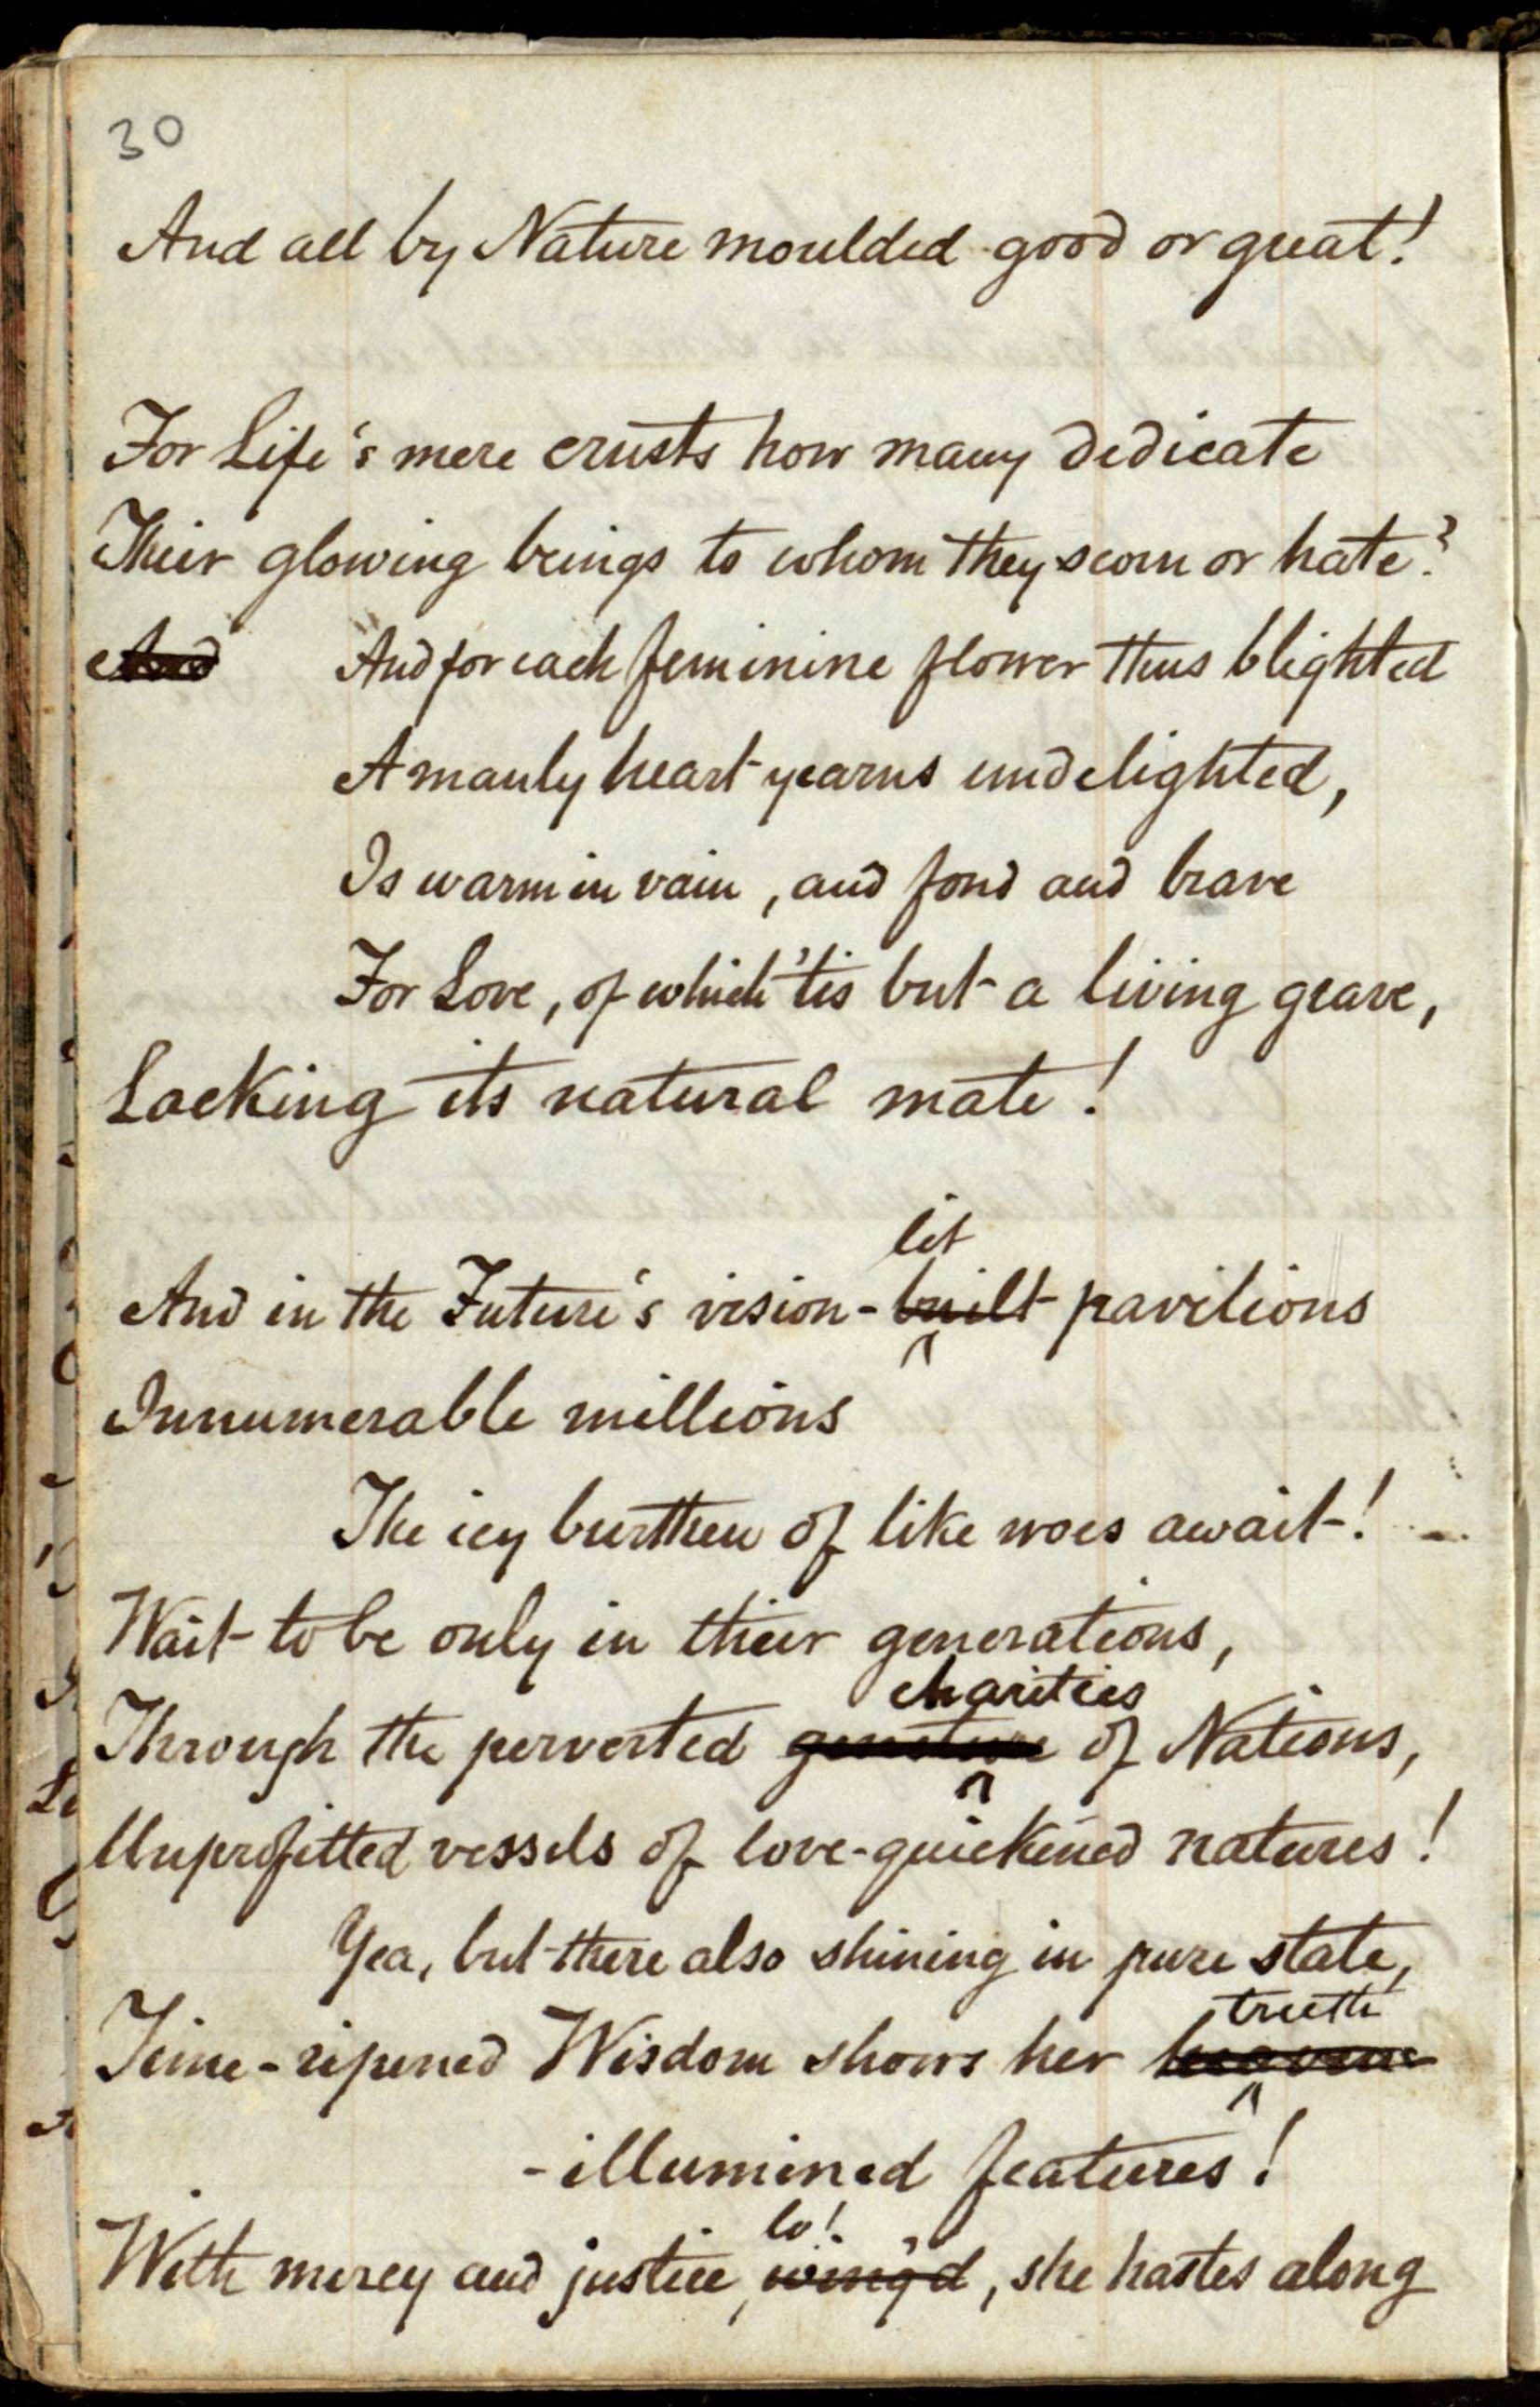 30
And all by Nature moulded good or great!
For Life's mere crusts how many dedicate
Their glowing beings to whom they scorn or hate?
And And for each feminine flower thus blighted
A manly heart yearns undelighted,
Is warm in vain, and fond and brave
For Love, of which 'tis but a living grave,
Lacking its natural mate!
lit
And in the Future's vision-built pavilions
Innumerable millions
The icy burthen of like woes await!
Wait to be only in their generations,
charities
Through the perverted of Nations,
Unprofitted vessels of love-quickened natures!
Yea, but there also shining in pure state,
truth
Time-ripened Wisdom shows her
-illumined features!
lo!
With mercy and justice, wing'd, she hastes along